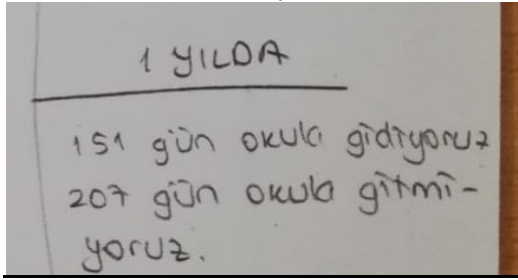 1 YILDA
151 gün okula gidiyoruz
207 gün okula gitmi-
yoruz.